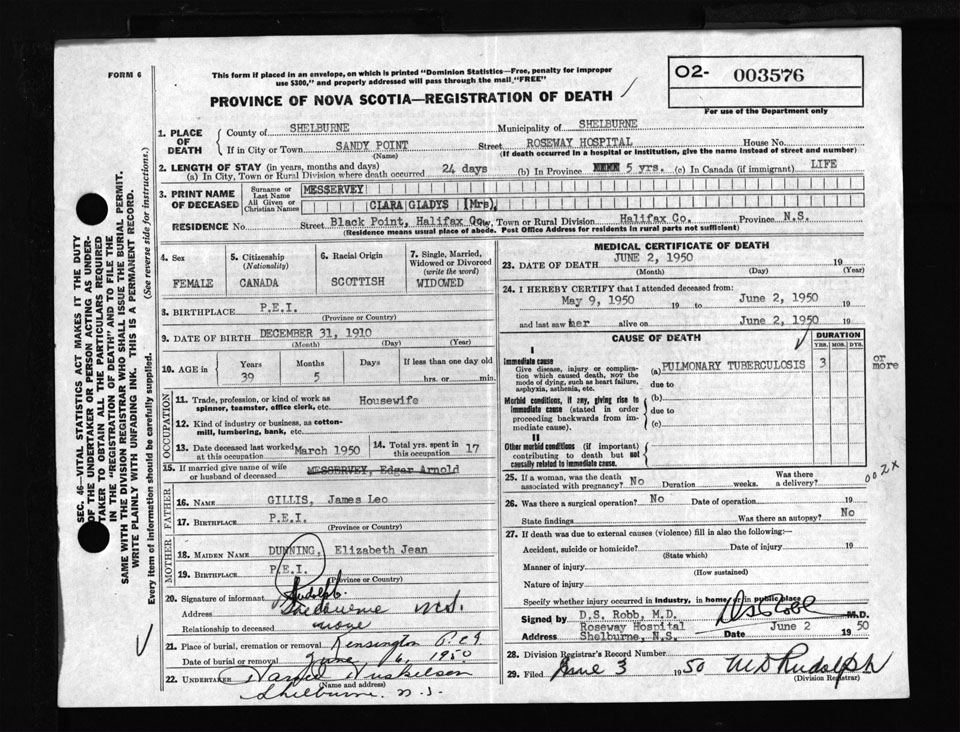 FORM 6
This form if placed in an envelope, on which is printed "Dominion Statistics—Free, penalty for improper
use $300," and properly addressed will pass through the mail "FREE"
O2- 003576
For use of the Department only
PROVINCE OF NOVA SCOTIA—REGISTRATION OF DEATH
1. PLACE OF DEATH
County of SHELBURNE Municipality of SHELBURNE
If in City or Town SANDY POINT Street ROSEWAY HOSPITAL House No.
(Name) (If death occurred in a hospital or institution, give the name instead of street and number)
2. LENGTH OF STAY (in years, months and days)
(a) In City, Town or Rural Division where death occurred 24 days (b) In Province 5 yrs. (c) In Canada (if immigrant) LIFE
3. PRINT NAME OF DECEASED
Surname or Last Name MESSERVEY
All Given or Christian Names CLARA GLADYS (Mrs)
RESIDENCE No. Street Black Point, Halifax Co., Town or Rural Division Halifax Co. Province N.S.
(Residence means usual place of abode. Post Office Address for residents in rural parts not sufficient)
4. Sex
FEMALE
5. Citizenship
(Nationality)
CANADA
6. Racial Origin
SCOTTISH
7. Single, Married,
Widowed or Divorced
(write the word)
WIDOWED
8. BIRTHPLACE P.E.I.
(Province or Country)
9. DATE OF BIRTH DECEMBER 31, 1910
(Month) (Day) (Year)
10. AGE in Years Months Days If less than one day old
39 5 hrs. or min.
OCCUPATION
11. Trade, profession, or kind of work as
spinner, teamster, office clerk, etc. Housewife
12. Kind of industry or business, as cotton-
mill, lumbering, bank, etc.
13. Date deceased last worked March 1950
14. Total yrs. spent in 17
15. If married give name of wife
or husband of deceased MESSERVEY, Edgar Arnold
FATHER
16. NAME GILLIS, James Leo
17. BIRTHPLACE P.E.I.
(Province or Country)
MOTHER
18. MAIDEN NAME DUNNING, Elizabeth Jean
19. BIRTHPLACE P.E.I.
(Province or Country)
20. Signature of informant Rudolph.
Address Shelburne N.S.
Relationship to deceased none
21. Place of burial, cremation or removal Kensington P.E.I
Date of burial or removal June 6, 1950
22. UNDERTAKER Huskilson
(Name and address)
Shelburne, N.S.
MEDICAL CERTIFICATE OF DEATH
23. DATE OF DEATH JUNE 2, 1950 19
(Month) (Day) (Year)
24. I HEREBY CERTIFY that I attended deceased from:
May 9, 1950 19 to June 2, 1950 19
and last saw her alive on June 2, 1950 19
CAUSE OF DEATH
DURATION
YRS. MOS. DYS.
I
Immediate cause
Give disease, injury or complica-
tion which caused death, NOT the
mode of dying, such as heart failure,
asphyxia, asthenia, etc.
(a) PULMONARY TUBERCULOSIS 3 or more
due to
Morbid conditions, if any, giving rise to
immediate cause (stated in order
proceeding backwards from im-
mediate cause).
(b)
due to
(c)
II
Other morbid conditions (if important)
contributing to death but not
causally related to immediate cause.
002X
25. If a woman, was the death
associated with pregnancy? No Duration weeks. Was there
a delivery?
26. Was there a surgical operation? No Date of operation 19
State findings Was there an autopsy? No
27. If death was due to external causes (violence) fill in also the following:—
Accident, suicide or homicide? Date of injury 19
(State which)
Manner of injury
(How sustained)
Nature of injury
Specify whether injury occurred in industry, in home, or in public place
Signed by D.S. Robb, M.D. DS Robb M.D.
Roseway Hospital
Address Shelburne, N.S. Date June 2 19 50
28. Division Registrar's Record Number
29. Filed June 3 1950 M D Rudolph
(Division Registrar)
SEC. 46—VITAL STATISTICS ACT MAKES IT THE DUTY
OF THE UNDERTAKER OR PERSON ACTING AS UNDER-
TAKER TO OBTAIN ALL THE PARTICULARS REQUIRED
IN THE "REGISTRATION OF DEATH" AND TO FILE THE
SAME WITH THE DIVISION REGISTRAR WHO SHALL ISSUE THE BURIAL PERMIT.
WRITE PLAINLY WITH UNFADING INK. THIS IS A PERMANENT RECORD.
Every item of information should be carefully supplied. (See reverse side for instructions.)